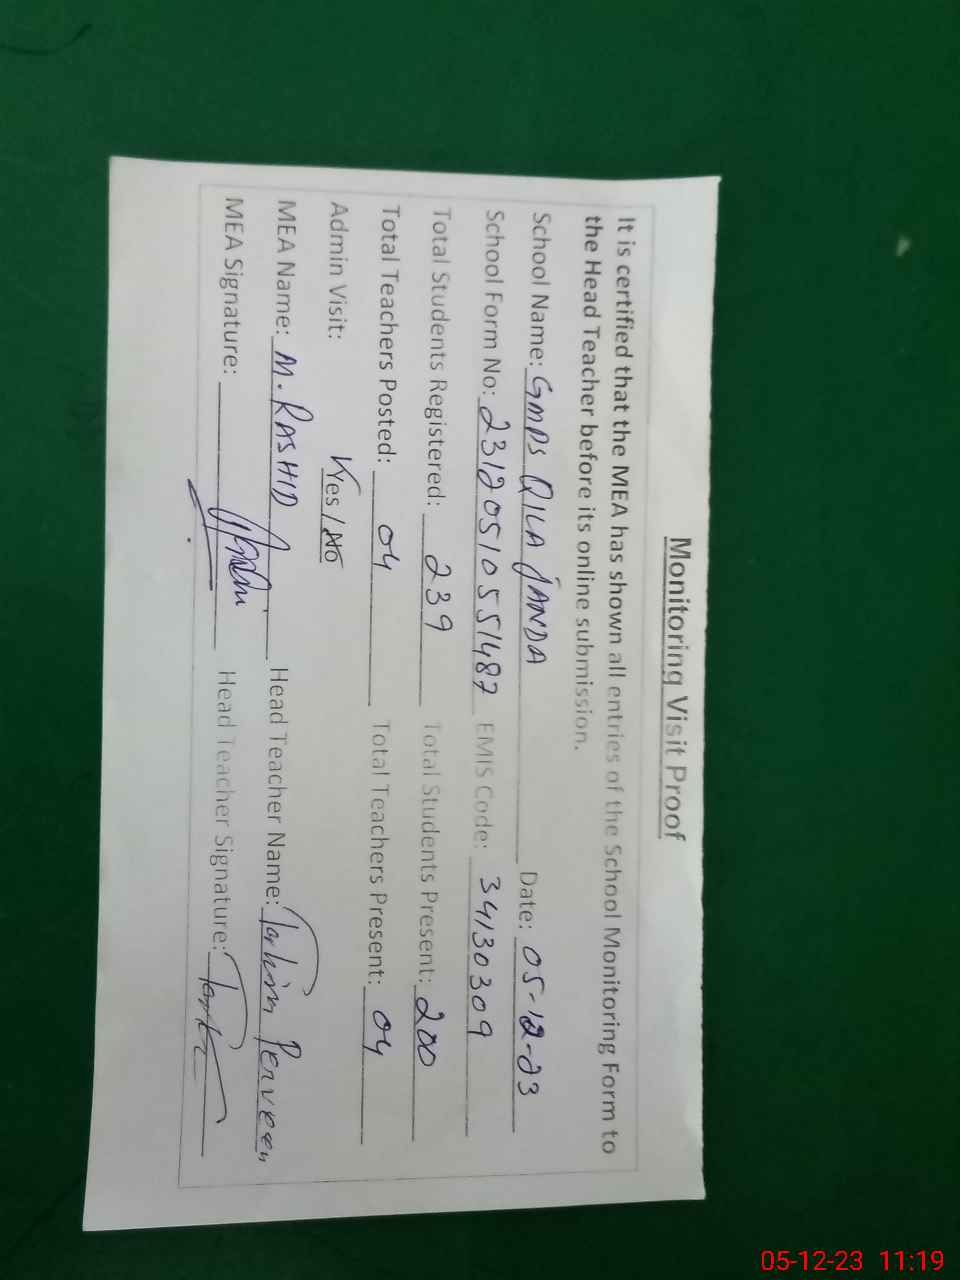 Monitoring Visit Proof
It is certified that the MEA has shown all entries of the School Monitoring Form to
the Head Teacher before its online submission.
School Name: GMPS QILA JANDA Date: 05-12-23
School Form No: 231205105551487 EMIS Code: 34130309
Total Students Registered: 239 Total Students Present: 200
Total Teachers Posted: 04 Total Teachers Present: 04
Admin Visit: Yes / No
MEA Name: M. RASHID Head Teacher Name: Perveen
MEA Signature: Head Teacher Signature:
05-12-23 11:19